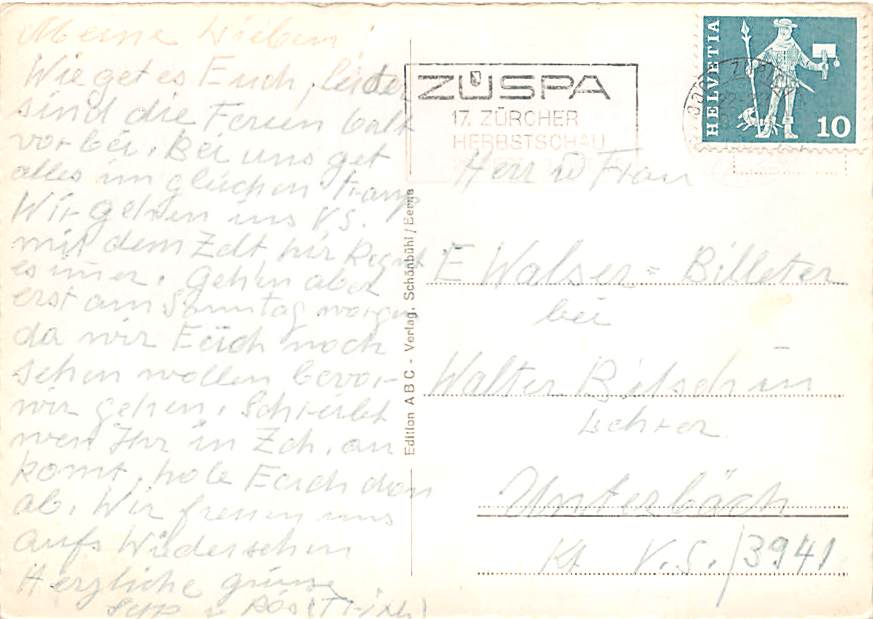 Meine Lieben!
Wie get es Euch, leider
sind die Ferien balt
vorbei. Bei uns get
alles im gleichen
Wir gehen ins VS.
mit dem Zelt hir
es imer. Gehen aber
erst am Sonntag morgen
da wir Euch noch
sehen wollen bevor
wir gehen. Schreibt
wen Ihr in Zch. an
komt, hole Euch dan
ab. Wir freuen uns
aufs Wiedersehen
Herzliche grüsse
Edition ABC - Verlag. Schönbühl/Berne
ZÜSPA
17. ZÜRCHER
HERBSTSCHAU
HELVETIA
10
Herr u Frau
E Walser = Billeter
bei
Walter Bitschin
Lehrer
Unterbäch
Kt V.S./3941